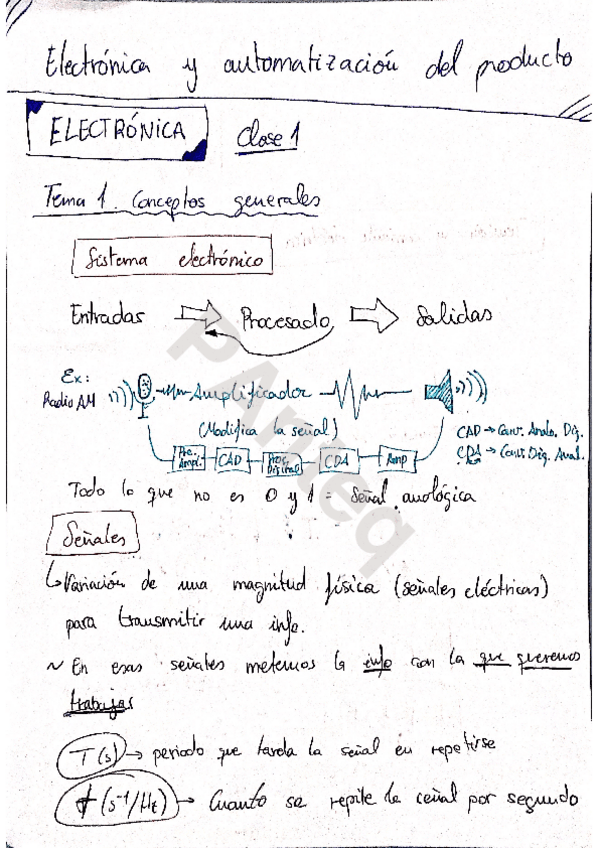 Electrónica y automatización del producto
ELECTRÓNICA Clase 1
Tema 1. Conceptos generales
Sistema electrónico
Entradas Procesado Salidas
Ex:
Radio AM
Amplificador
(Modifica la señal)
CAD → Conv. Analo. Dig.
CDA → Conv. Dig. Anal.
Pre. Ampl. CAD Proc. Digital CDA Amp
Todo lo que no es 0 y 1 = Señal analógica
Señales
↳ Variación de una magnitud física (señales eléctricas)
para transmitir una info.
~ En esas señales metemos la info con la que queremos
trabajar
T(s) → periodo que tarda la señal en repetirse
f (s⁻¹/Hz) → Cuanto se repite la señal por segundo
PAnteq